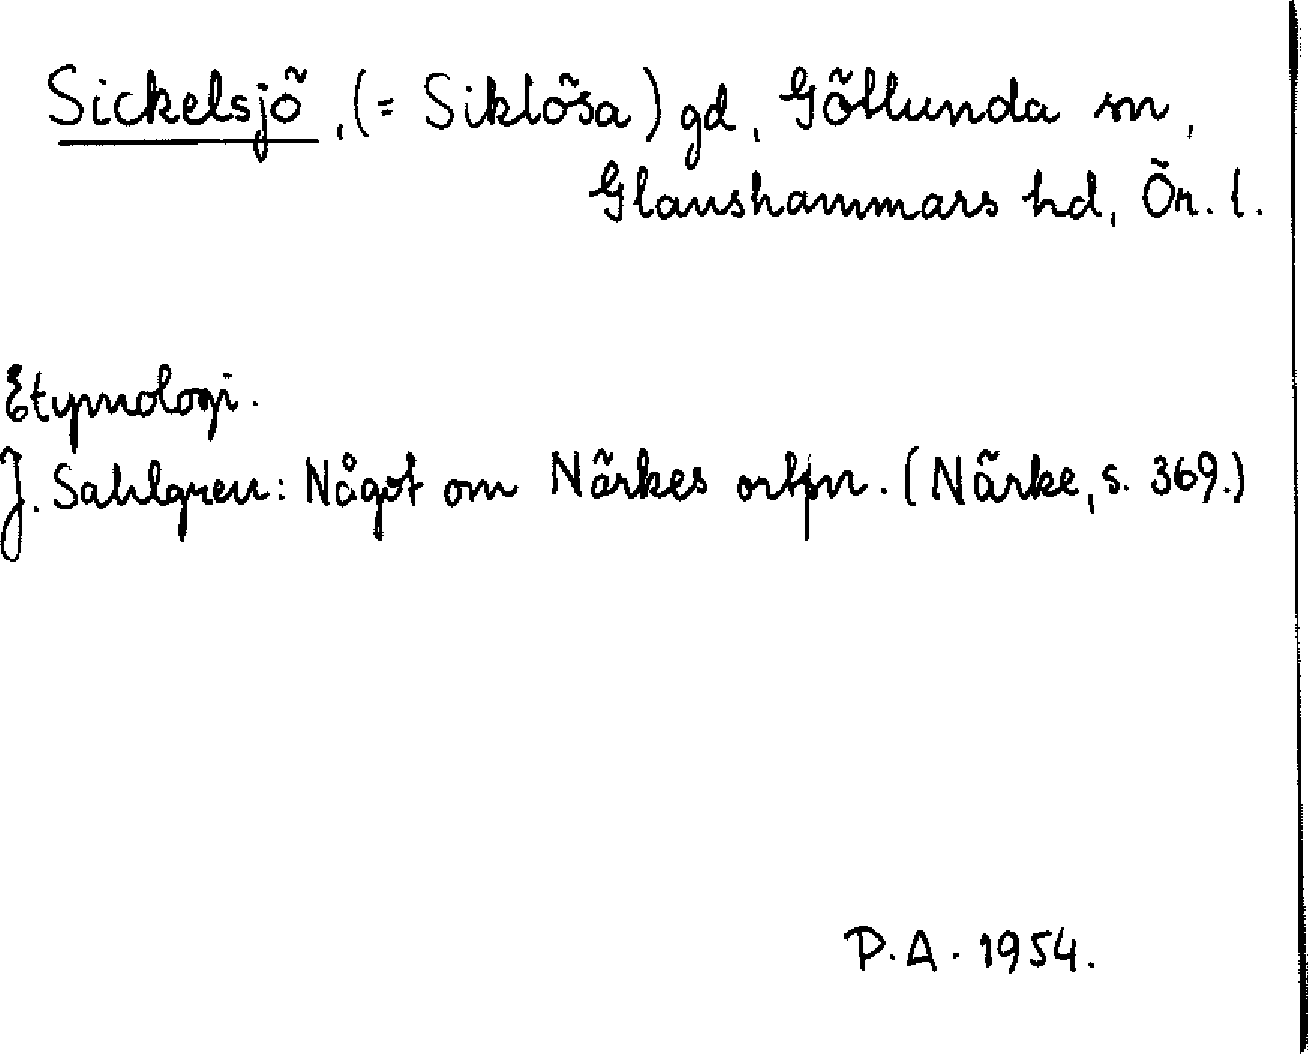 Sickelsjö, (= Siklösa) gd, Götlunda sn,
Glanshammars hd, Ör. l.
Etymologi.
J. Sahlgren: Något om Närkes ortsn. (Närke, s. 369.)
P.A. 1954.